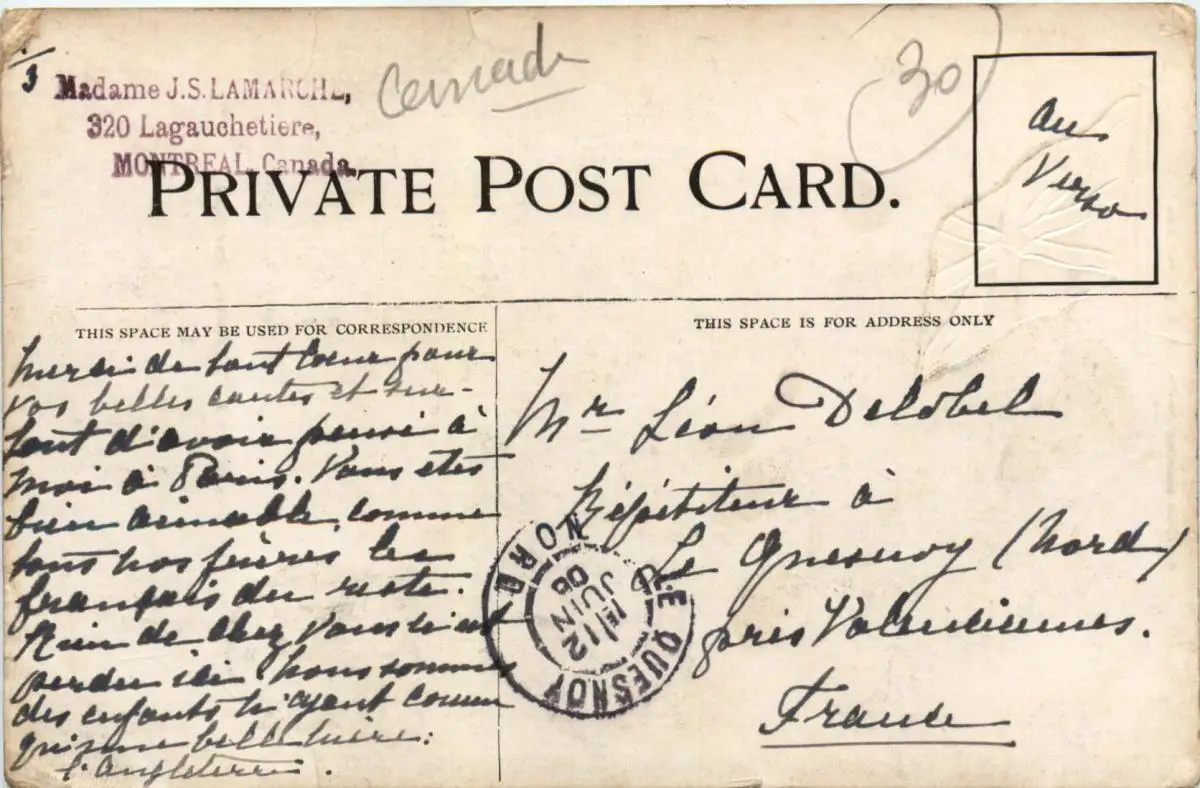 3
Madame J.S. LAMARCHE,
320 Lagauchetiere,
MONTREAL, Canada.
30
PRIVATE POST CARD.
au
Verso
THIS SPACE MAY BE USED FOR CORRESPONDENCE
Merci de tout coeur pour
vos belles cartes et sur-
tout d'avoir pensé à
moi à Paris. Vous êtes
bien aimable, comme
tous nos frères les
français du reste.
Rien de chez vous n'est
perdu ici. Nous sommes
des enfants n'ayant connu
qu'une belle mère:
l'Angleterre.
THIS SPACE IS FOR ADDRESS ONLY
Mr Léon Delobel
Répétiteur à
Le Quesnoy (Nord)
près Valenciennes.
France
LE QUESNOY
NORD
12
JUIN
08